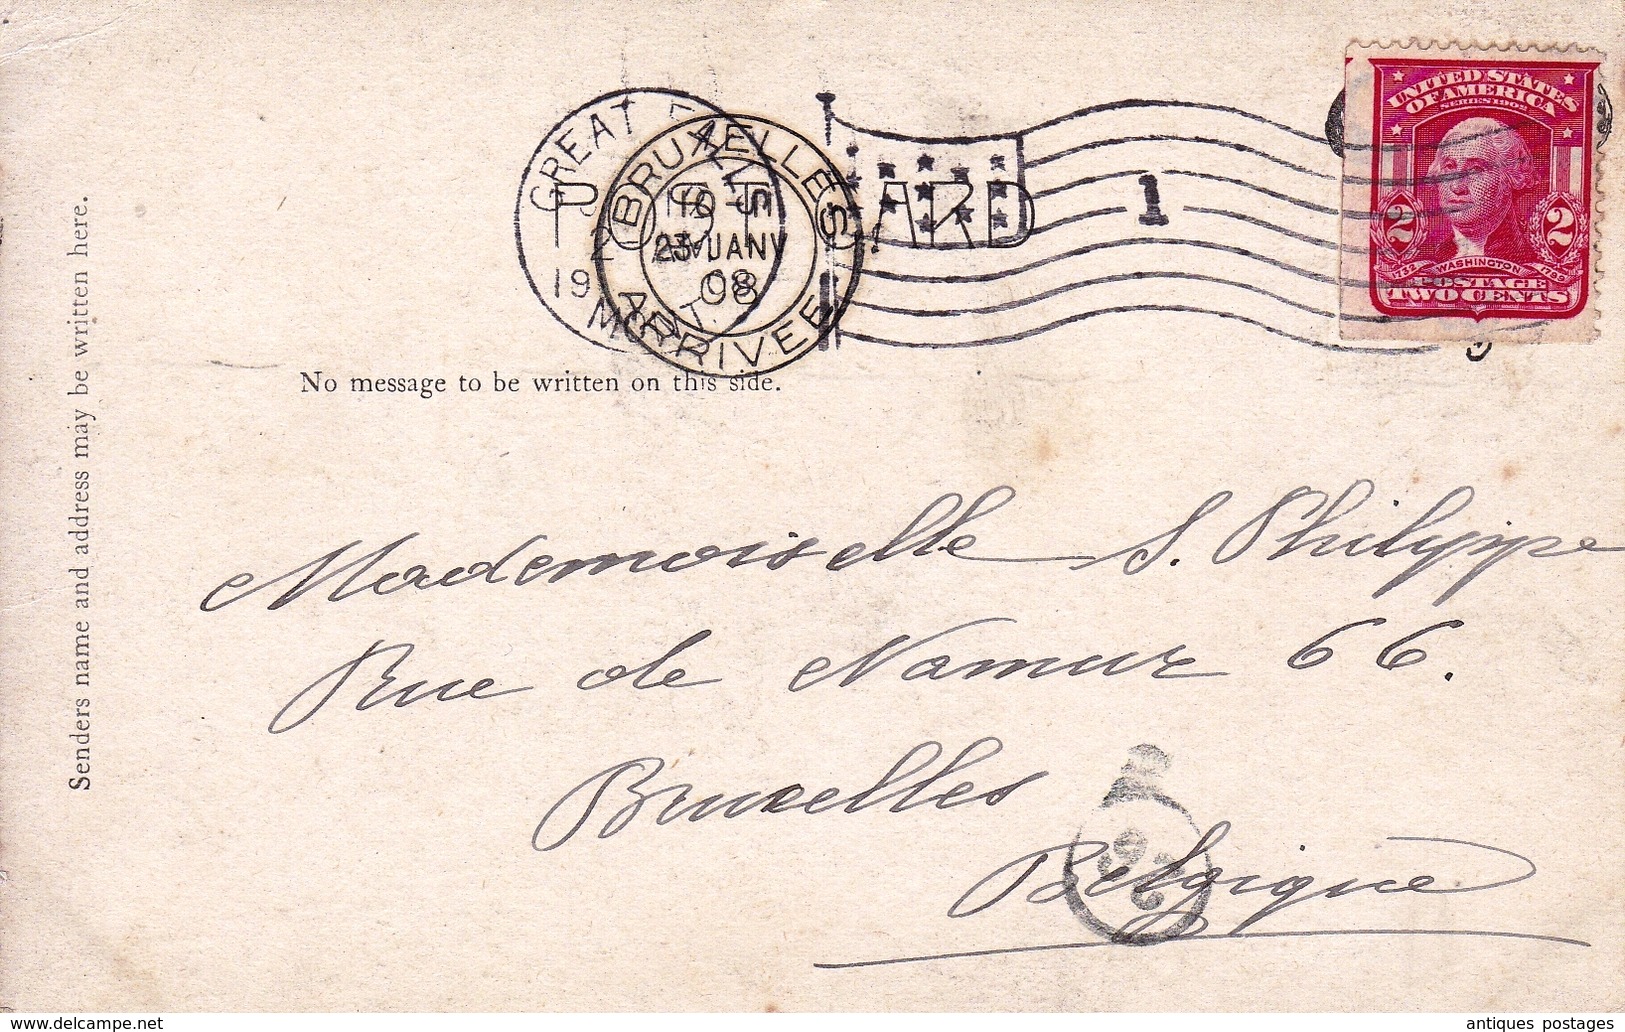 GREAT FALLS
MONT.
BRUXELLES
23 JANV
08
ARRIVEE
1
UNITED STATES
OF AMERICA
SERIES 1902
2 2
1732 WASHINGTON 1799
POSTAGE
TWO CENTS
No message to be written on this side.
Senders name and address may be written here.
Mademoiselle S. Philippe
Rue de Namur 66.
Bruxelles
Belgique
delcampe.net
antiques postages